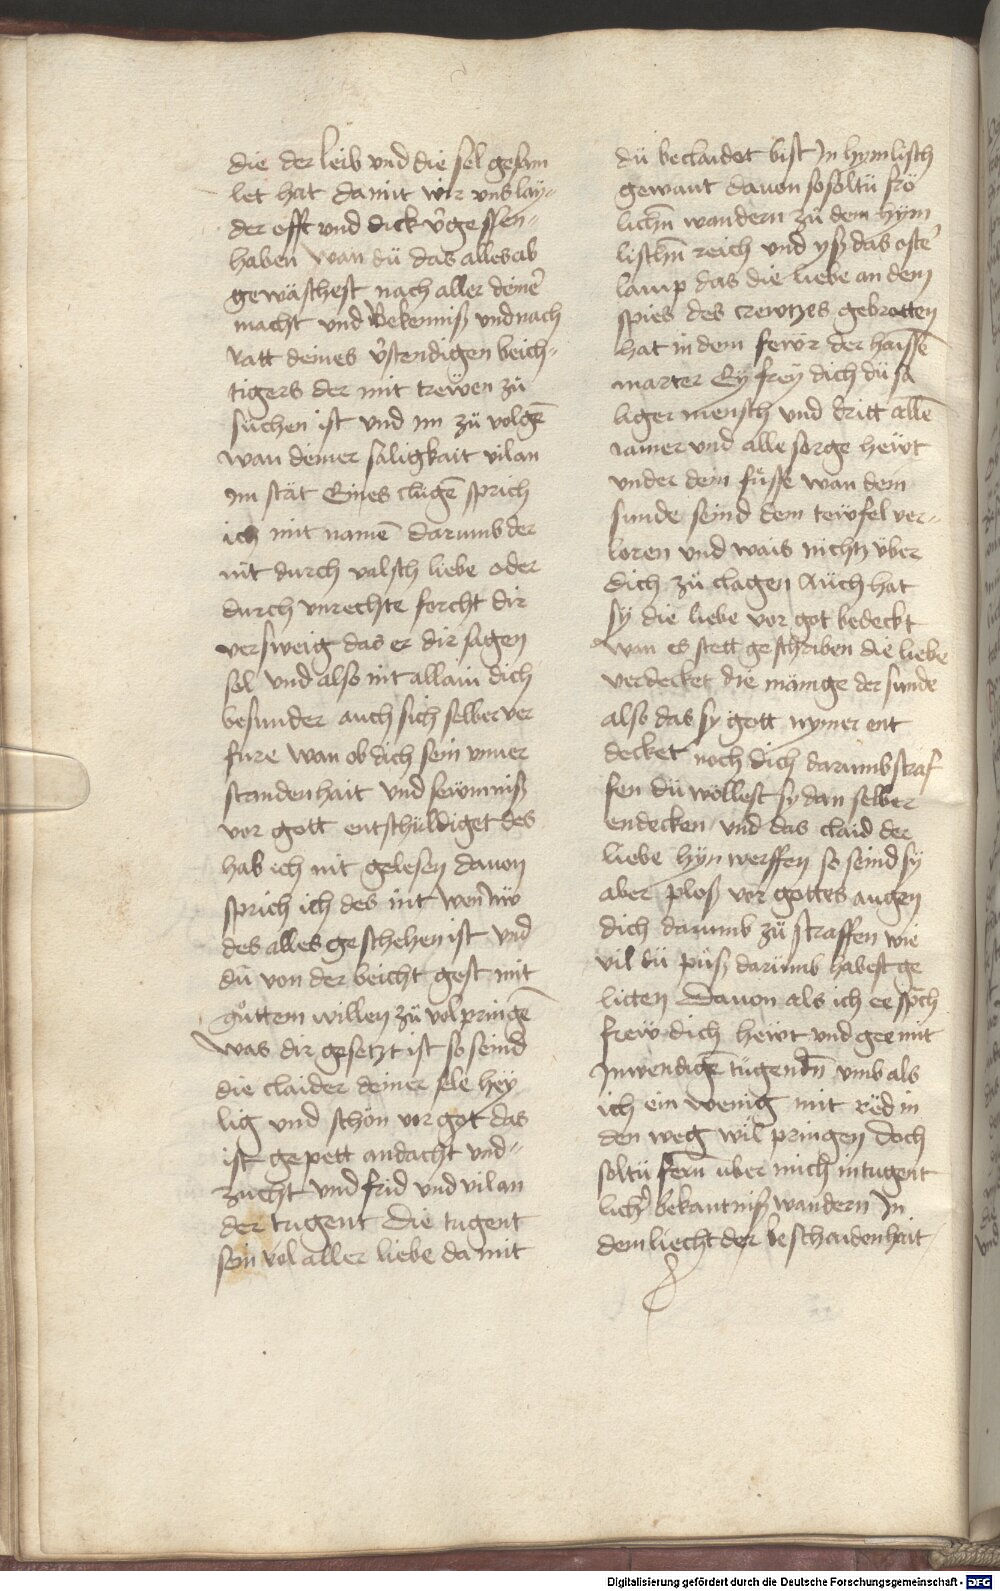 die der leib vnd die sel gesam
let hat damit wir vns lay-
der offt vnd dick v̄gessen-
haben wan dü das alles ab
gewäschest nach aller deinē
macht vnd Bekenniß vnd nach
ratt deines v̄stendigen beich-
tigers der mit trewen zü
süchen ist vnd im zü volgē
wan deiner säligkait vil an
im stät Eines clügē sprich
ich mit namē darumb der
nit durch valsch liebe oder
durch vnrechte forcht dir
versweig das er dir sagen
sol vnd also nit allain dich
besunder auch sich selber ver
füre wan ob dich sein vnuer
standenhait vnd sewmniß
vor gott entschüldiget des
hab ich nit gelesen dauon
sprich ich des nit wen nw
des alles geschehen ist vnd
dü von der beicht gest mit
güttem willen zü volpringē
was dir gesetzt ist so seind
die claider deiner sele hey
lig vnd schön vor got das
ist gepett andacht vnd-
zucht vnd frid vnd vil an
der tugent Die tugent
sein vol aller liebe da mit
dü beclaidet bist In hymlisch
gewant dauon so soltü frö
lichn̄ wandern zü dem hym
lischn̄ reich vnd yß das oste᷑
lamp das die liebe an dem
spies des crewtzes gebrotten
hat in dem fewr der haissē
marter Ey frey dich dü sä
liger mensch vnd dritt allē
iamer vnd alle sorge hewt
vnder dein füsse wan dem
sunde seind dem tewfel ver-
loren vnd wais nichtz über
dich zü clagen Auch hat
sy die liebe vor got bedeckt
wan es stett geschriben die liebe
verdecket die mänige der sunde
also das sy gott nymer ent
decket noch dich darumb straf
fen dü wöllest sy dan selber
endecken vnd das claid der
liebe hyn werffen so seind sy
aber ploß vor gottes augen
dich darumb zü straffen wie
vil dü püß darumb habest ge
litten Dauon als ich ee sp̄ch
frew dich hewt vnd gee mit
Inwendigē tügendn̄ vmb als
ich ein wenig mit red in
den weg wil pringen doch
soltü fern̄ über mich in tugent
lich᷑ bekantniß wandern In
dem liecht der beschaidenhait
Digitalisierung gefördert durch die Deutsche Forschungsgemeinschaft - DFG